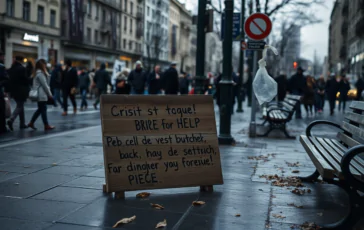 Crisit st toque!
BRIZE for HELP
Peb cell de vest butchet,
back, hay de settuch,
Far dinoher yay foreuse!
PIECE